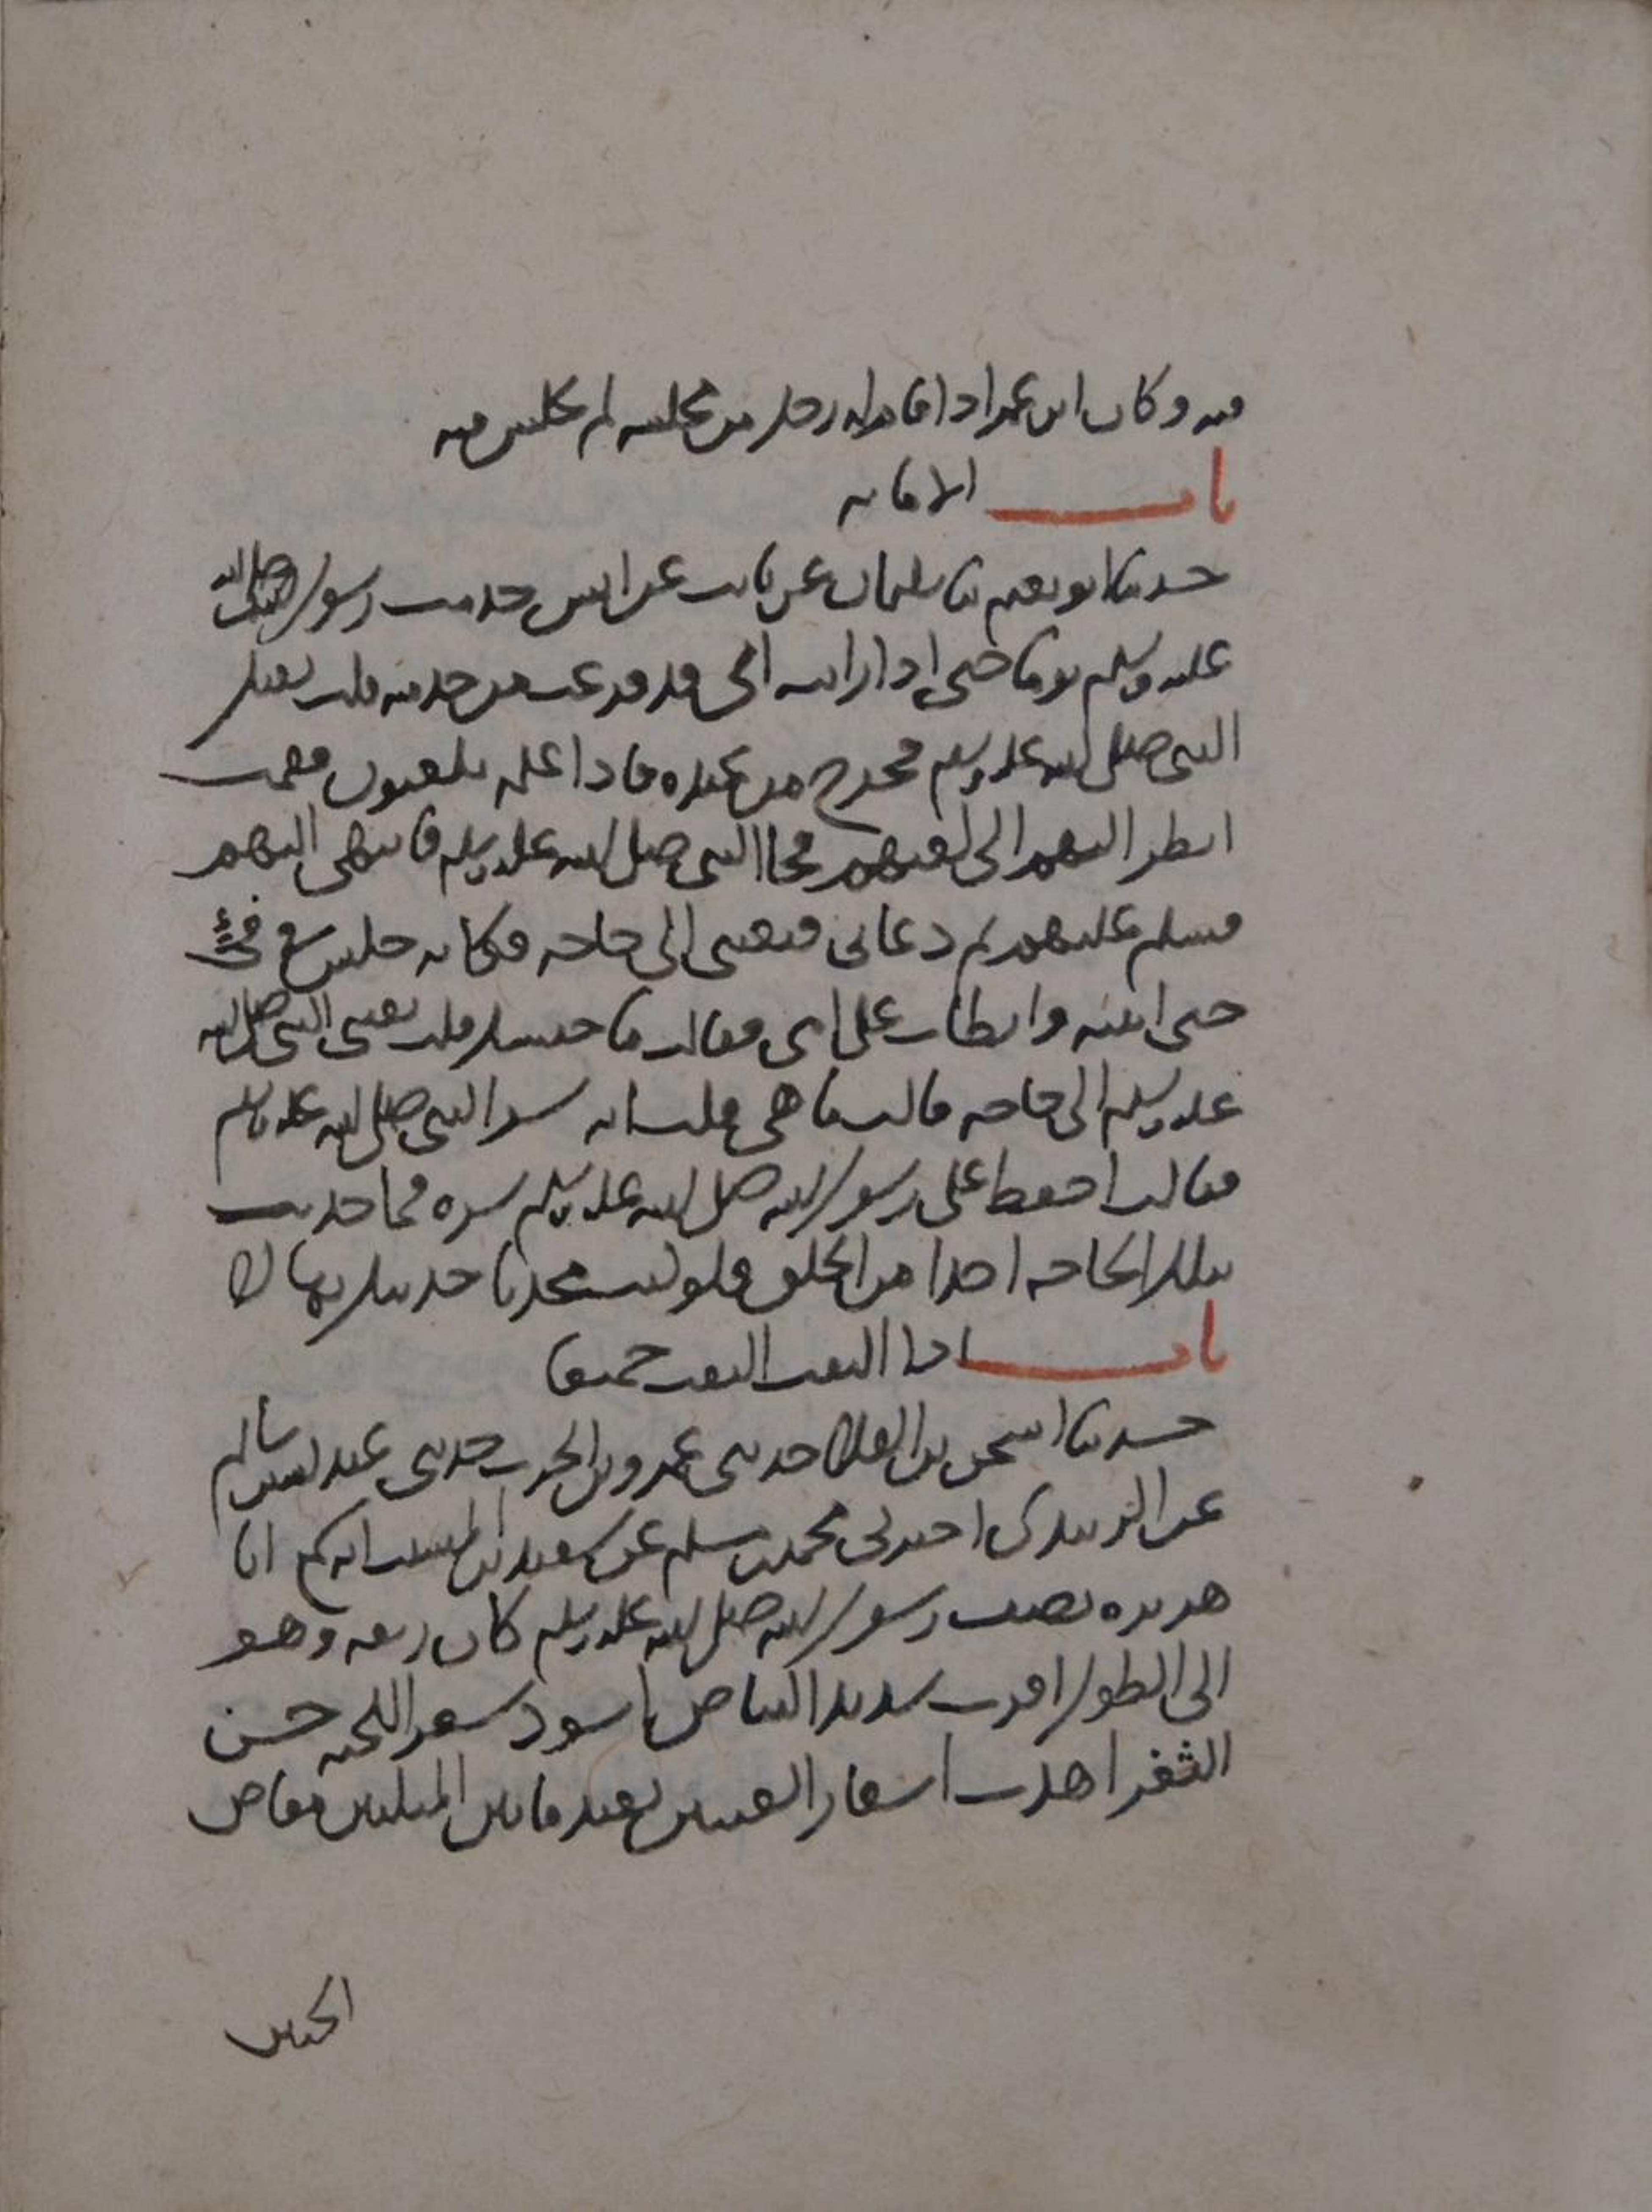 فيه وكان ابن عمر اذا قام له رجل من مجلسه لم يجلس فيه
باب الامانه
حدثنا ابو نعيم ثنا سليمان عن ثابت عن انس خدمت رسول الله صلى الله
عليه وسلم يوما حتى اذا رايت اني قد فرغت من خدمته قلت يقيل
النبي صلى الله عليه وسلم فخرج من عنده فاذا غلمه يلعبون فقمت
انظر اليهم الى لعبهم فجا النبي صلى الله عليه وسلم فانتهى اليهم
فسلم عليهم ثم دعاني فبعثني الى حاجه فكانه جلس في فيٍ
حتى اتيته وابطات على امي فقالت ما حبسك قلت بعثني النبي صلى الله
عليه وسلم الى حاجه قالت ما هي قلت انه سر النبي صلى الله عليه وسلم
فقالت احفظ على رسول الله صلى الله عليه وسلم سره فما حدثت
بتلك الحاجه احدا من الخلق فلو كنت محدثا حدثتك بها لا
باب اذا التفت التفت جميعا
حدثنا اسحق بن العلا حدثني عمرو بن الحرث حدثني عبد الله بن سالم
عن الزبيدي اخبرني محمد بن مسلم عن سعيد بن المسيب انه سمع ابا
هريره يصف رسول الله صلى الله عليه وسلم كان ربعه وهو
الى الطول اقرب شديد البياض اسود شعر اللحيه حسن
الثغر اهدب اشفار العينين بعيد ما بين المنكبين مفاض
الجبين